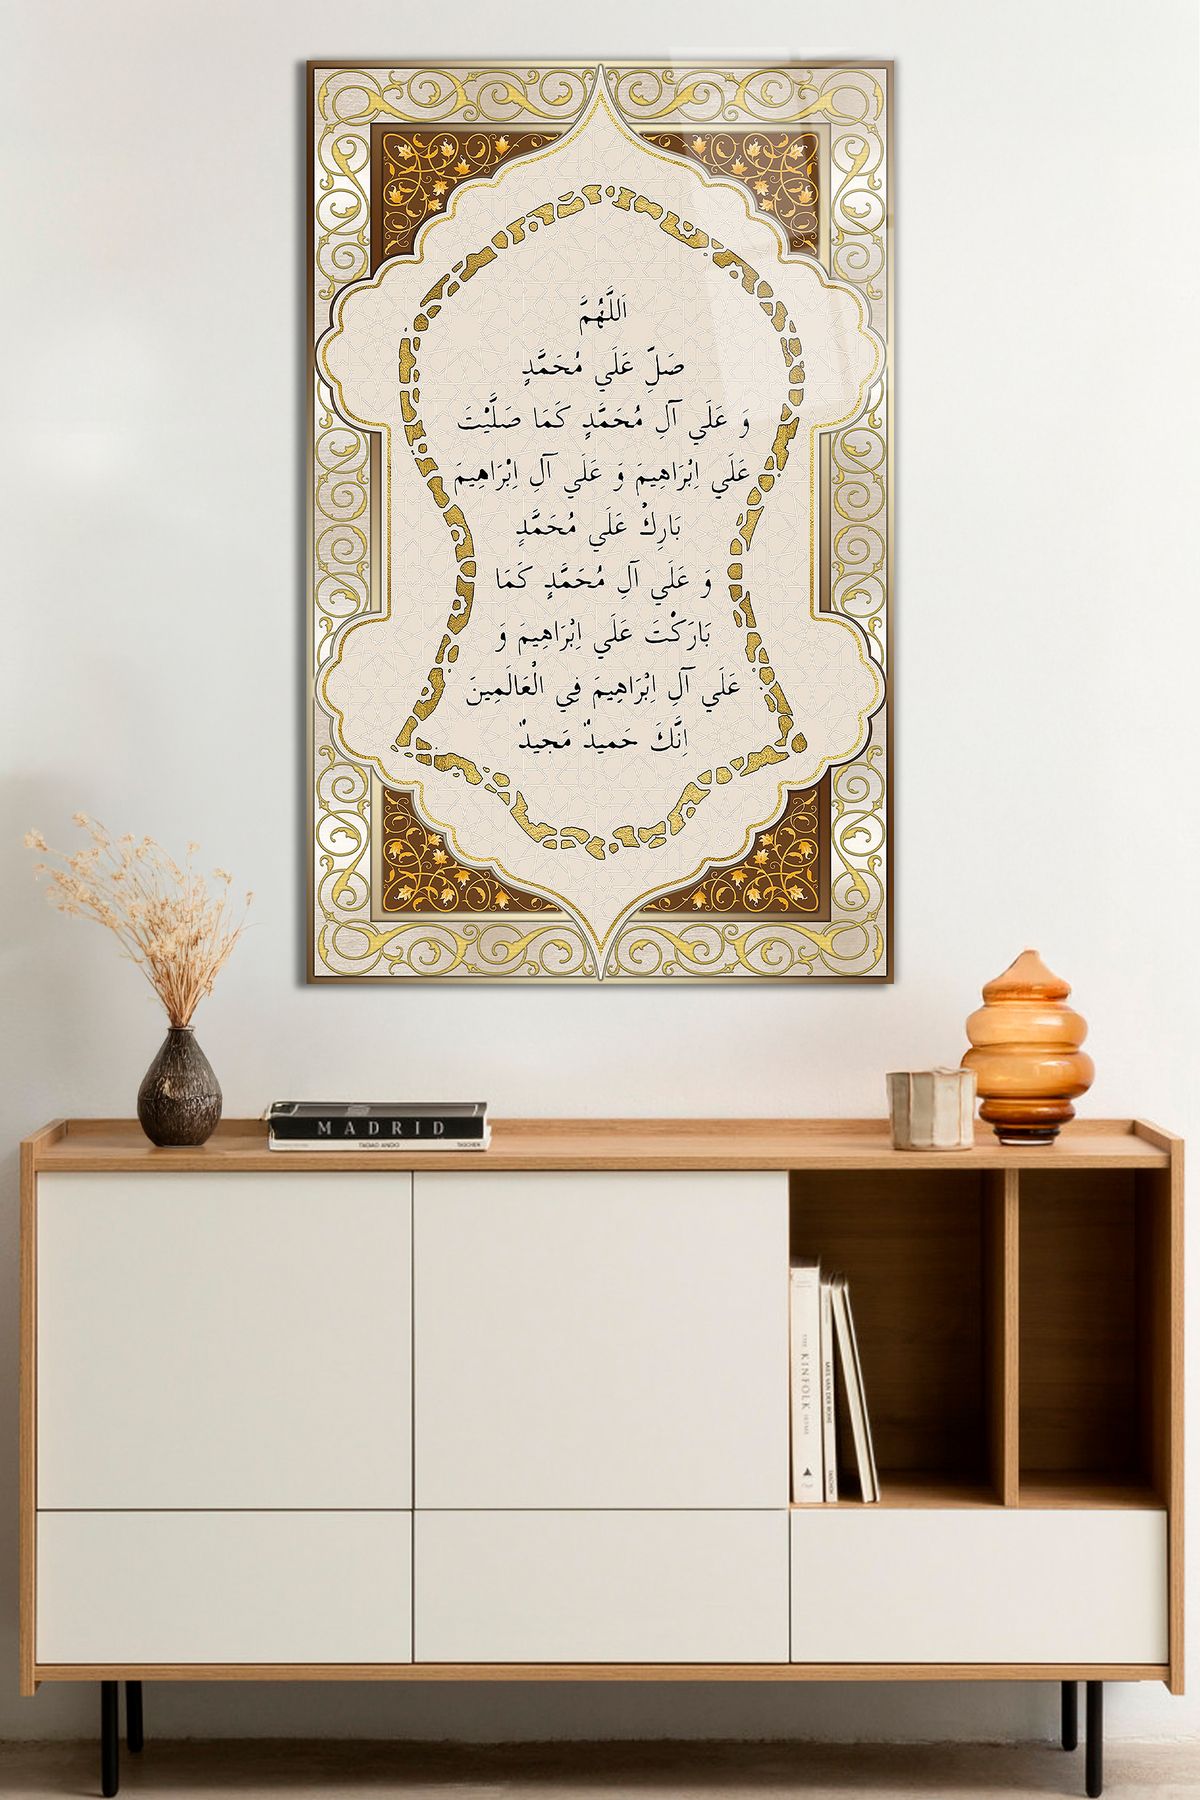 اَللَّهُمَّ
صَلِّ عَلَي مُحَمَّدٍ
وَ عَلَي آلِ مُحَمَّدٍ كَمَا صَلَّيْتَ
عَلَي اِبْرَاهِيمَ وَ عَلَي آلِ اِبْرَاهِيمَ
بَارِكْ عَلَي مُحَمَّدٍ
وَ عَلَي آلِ مُحَمَّدٍ كَمَا
بَارَكْتَ عَلَي اِبْرَاهِيمَ وَ
عَلَي آلِ اِبْرَاهِيمَ فِي الْعَالَمِينَ
اِنَّكَ حَمِيدٌ مَجِيدٌ
MADRID
TADAO ANDO TASCHEN
THE KINFOLK HOME
MIES VAN DER ROHE TASCHEN